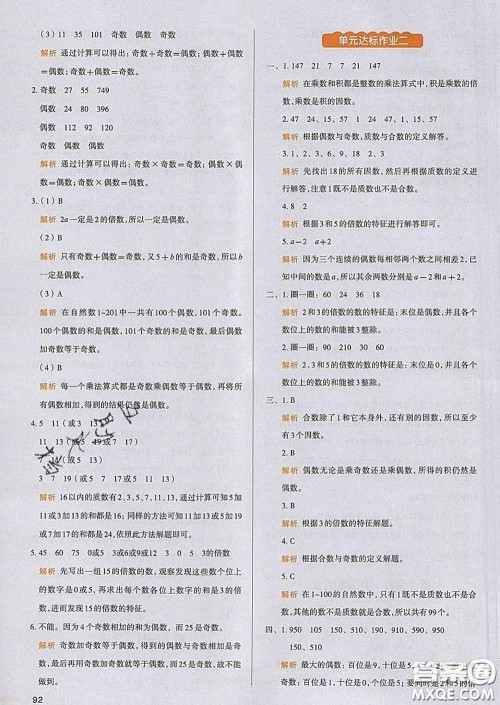 (3) 11 35 101 奇数 偶数 奇数
解析 通过计算可以得出:奇数+奇数=偶数;偶数+偶数
=偶数;奇数+偶数=奇数。
2.奇数 27 55 749
偶数 24 80 396
奇数 偶数 偶数
解析 通过计算可以得出:奇数×奇数=奇数;偶数×偶
数=偶数;奇数×偶数=偶数。
3.(1) B
解析 2a一定是2的倍数,所以一定是偶数。
(2) B
解析 只有奇数+奇数=偶数,又5+b的和是偶数,所以b
一定是奇数。
(3) A
解析 在自然数1~201中一共有100个偶数,101个奇数。
100个偶数的和是偶数,101个奇数的和是奇数,最后偶数
加奇数等于奇数。
(4) B
解析 每一个乘法算式都是奇数乘偶数等于偶数,再将所
有偶数相加,得到的结果仍然是偶数。
4.5 11(或3 13)
11 13(或5 19或7 17)
3 7 19(或5 11 13)
解析 16以内的质数有2,3,5,7,11,13,通过计算可知5加
11或3加13的和是16;同样的方法可知11加13或5加19或7
加17的和都是24,依此方法解题即可。
5.45 60 75 0或5 3或6或9或12 0 5 3的倍数
解析 先写出一组15的倍数,观察发现这些数个位上的
数字是0或5,再求出每个数各个数位上数字的和是3的倍
数,进而发现15的倍数的特征。
6.不能。因为4个奇数相加的和为偶数,而25是奇数。
解析 奇数加奇数等于偶数,偶数与奇数相加是奇
数。因为4个奇数相加的和为偶数,而25是奇数,故不能
做到。
92
单元达标作业二
一、1.147 21 7 7 21 147
解析 在乘数和积都是整数的乘法算式中,积是乘数的倍
数,乘数是积的因数。
2.24 1,15,57 24,57 1 24 47 1,15,57
解析 根据偶数与奇数,质数与合数的定义解答。
3.1,2,3,6,9,18 2,3 6,9,18
解析 先找出18的所有因数,然后再根据质数与合数的定
义进行解答,注意1既不是质数也不是合数。
4.8 2
解析 根据3和5的倍数的特征进行解答即可。
5.a-2 a+2
解析 因为三个连续的偶数每相邻两个数之间相差2,已
知中间的数是a,所以其余两数分别是a-2和a+2。
二、1.圈一圈:60 24 36 18
解析 2和3的倍数的数的特征是:末位是偶数;并且各个
数位上的数的和能被3整除。
2.圈一圈:90 210 30 60
解析 2、3、5的倍数的数的特征:末位是0;并且各个数位
上的数的和能被3整除。
三、1.B
解析 合数除了1和它本身外,还有别的因数,所以至少有
3个因数。
2.B
解析 偶数无论是乘奇数还是乘偶数,所得的积仍然是
偶数。
3.B
解析 根据3的倍数的特征解题。
4.C
解析 根据合数与奇数的定义解题。
5.C
解析 在1~100的自然数中,只有1既不是质数也不是合
数,所以质数与合数共有99个。
四、1.950 105 950 150 510 950(或
150,510)
解析 最大的偶数:百位是9,十位是5,个位是0;最小的奇
数:百位是1,十位是0,个位是5;要同时是2和5的倍
答案圈
MXQE.COM